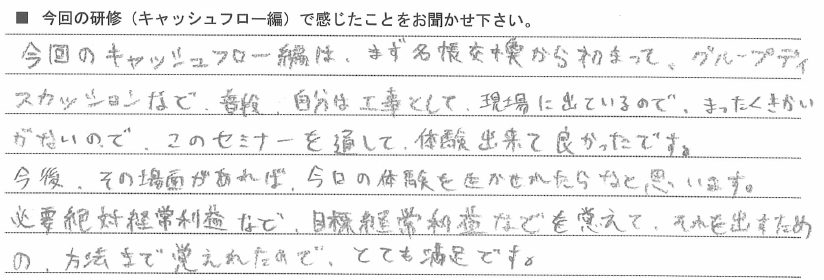 ■ 今回の研修（キャッシュフロー編）で感じたことをお聞かせ下さい。
今回のキャッシュフロー編は、まず名帳交換から初まって、グループディ
スカッションなどで、普段、自分は工事として、現場に出ているので、まったくきかい
がないので、このセミナーを通して、体験出来て良かったです。
今後、その場面があれば、今日の体験を生かせれたらなと思います。
必要絶対経常利益など、目標経常利益などを覚えて、それを出すため
の、方法まで覚えれたので、とても満足です。